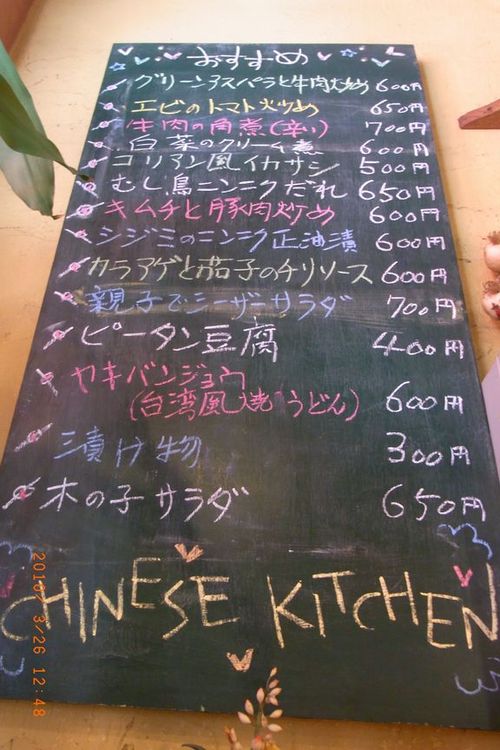 おすすめ
グリーンアスパラと牛肉炒め 600円
エビのトマト炒め 650円
牛肉の角煮(辛い) 700円
白菜のクリーム煮 600円
コリアン風イカサシ 500円
むし鳥ニンニクだれ 650円
キムチと豚肉炒め 600円
シジミのニンニク正油漬 600円
カラアゲと茄子のチリソース 600円
親子でシーザーサラダ 700円
ピータン豆腐 400円
ヤキバンジョウ
(台湾風焼うどん) 600円
漬け物 300円
木の子サラダ 650円
CHINESE KITCHEN
2010/ 3/26 12:48